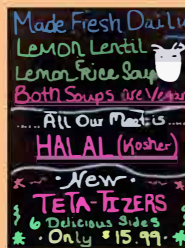 Made Fresh Daily
Lemon Lentil
Lemon Rice Soup
Both Soups are Vegan
All Our Meat is ....
HALAL (Kosher)
· New ·
TETA-TIZERS
6 Delicious Sides
Only $15.99